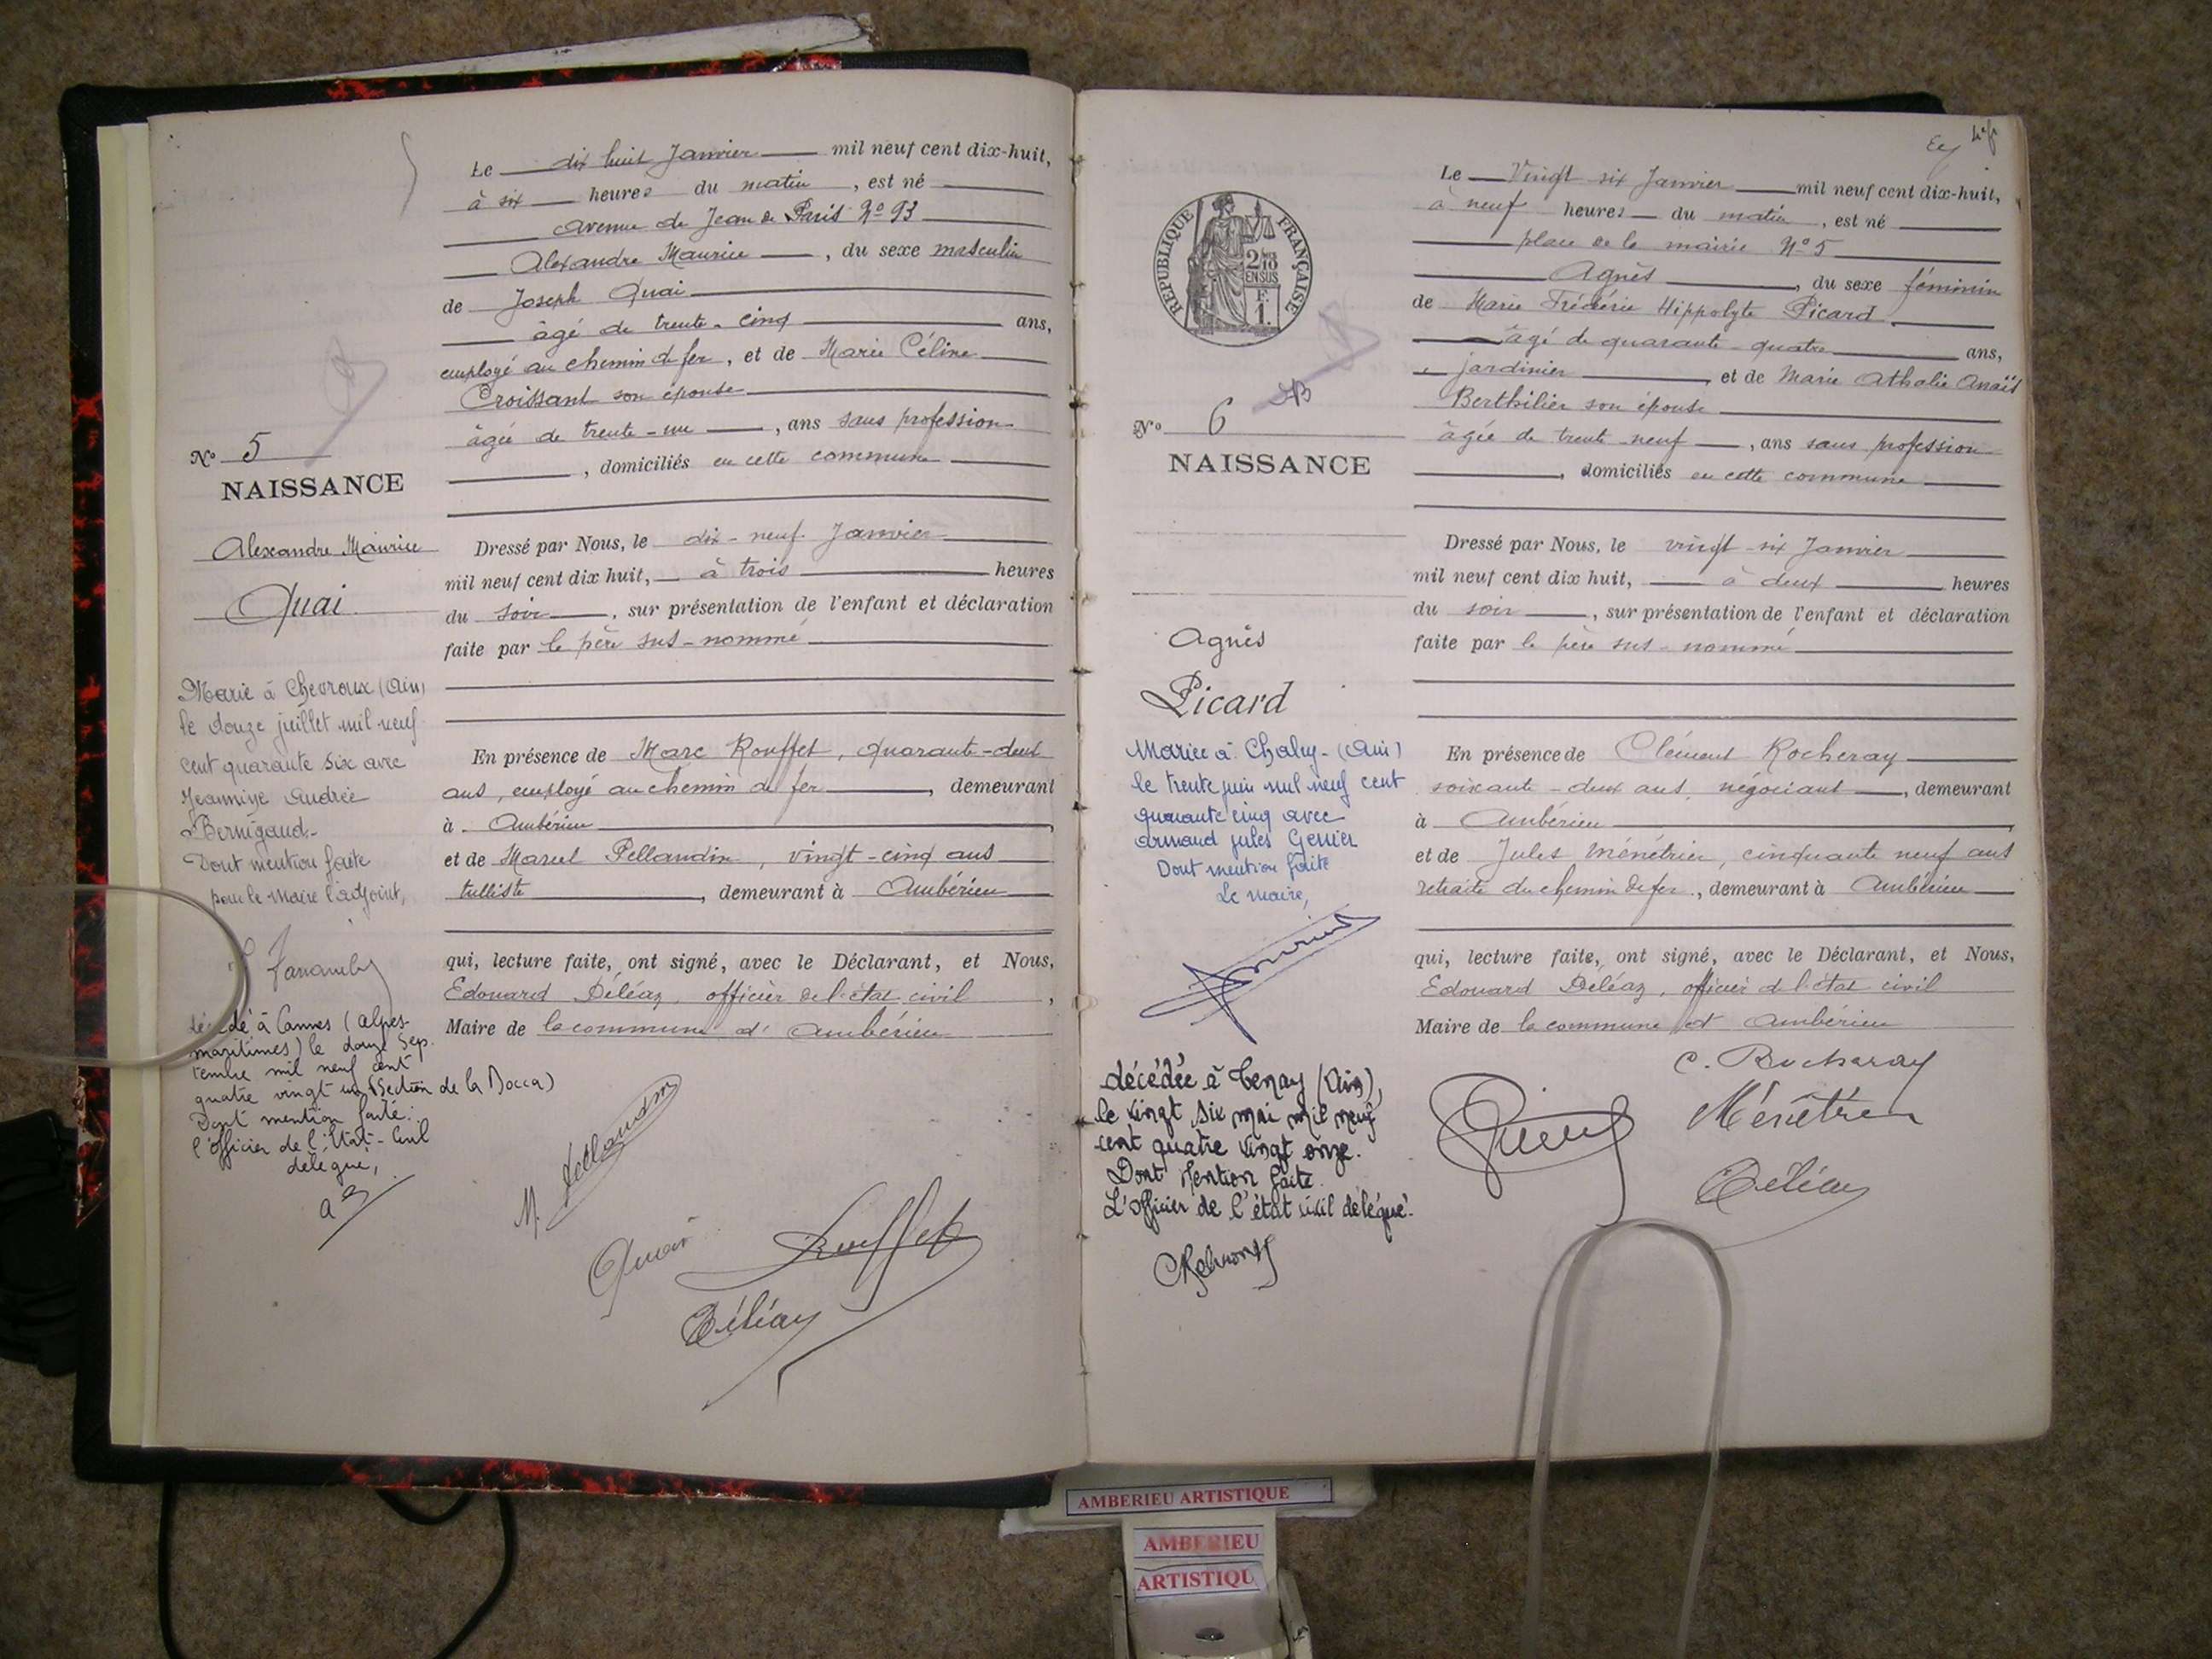 Le dix huit Janvier mil neuf cent dix-huit,
à six heures du matin, est né
avenue de Jean de Paris No 93
Alexandre Maurice, du sexe masculin
de Joseph Quai
âgé de trente-cinq ans,
employé au chemin d fer, et de Marie Céline
Croissant son épouse
âgée de trente-un, ans sans profession
, domiciliés en cette commune
No 5
NAISSANCE
Alexandre Maurice
Quai
Dressé par Nous, le dix-neuf Janvier
mil neuf cent dix huit, à trois heures
du soir, sur présentation de l'enfant et déclaration
faite par le père sus-nommé
Marié à Chevroux (Ain)
le douze juillet mil neuf
cent quarante six avec
Jeannine Andrée
Bernigaud.
Dont mention faite
pour le Maire l'adjoint,
En présence de Marc Rouffet, quarante-deux
ans, employé au chemin de fer, demeurant
à Ambérieu
et de Marcel Pellaudin, vingt-cinq ans
tulliste, demeurant à Ambérieu
qui, lecture faite, ont signé, avec le Déclarant, et Nous,
Edouard Déléaz, officier de l'état civil,
Maire de la commune d'Ambérieu
décédé à Cannes (Alpes-
maritimes) le douze Sep-
tembre mil neuf cent
quatre vingt un (Section de la Bocca)
Dont mention faite.
l'officier de l'Etat-Civil
délégué,
M. Pellaudin
Quai
Rouffet
Déléaz
Le Vingt six Janvier mil neuf cent dix-huit,
à neuf heures du matin, est né
place de la mairie No 5
Agnès, du sexe féminin
de Marie Frédéric Hippolyte Picard
âgé de quarante-quatre ans,
jardinier, et de Marie Athalie Anaïs
Berthilier son épouse
âgée de trente-neuf, ans sans profession
, domiciliés en cette commune
RÉPUBLIQUE FRANÇAISE
2/10
EN SUS
F.
1.
No 6
NAISSANCE
Agnès
Picard
Dressé par Nous, le vingt-six Janvier
mil neuf cent dix huit, à deux heures
du soir, sur présentation de l'enfant et déclaration
faite par le père sus-nommé
Mariée à Chaley (Ain)
le trente juin mil neuf cent
quarante cinq avec
Armand Jules
Dont mention faite
Le Maire,
En présence de Clément Rocheray
soixante-deux ans, négociant, demeurant
à Ambérieu
et de Jules Ménétrier, cinquante neuf ans
retraité du chemin de fer, demeurant à Ambérieu
qui, lecture faite, ont signé, avec le Déclarant, et Nous,
Edouard Déléaz, officier d l'état civil
Maire de la commune d'Ambérieu
décédée à Tenay (Ain),
le vingt six mai mil neuf
cent quatre vingt onze.
Dont Mention faite.
L'officier de l'état civil délégué.
C. Rocheray
Ménétrier
Déléaz
AMBERIEU ARTISTIQUE
AMBERIEU
ARTISTIQU